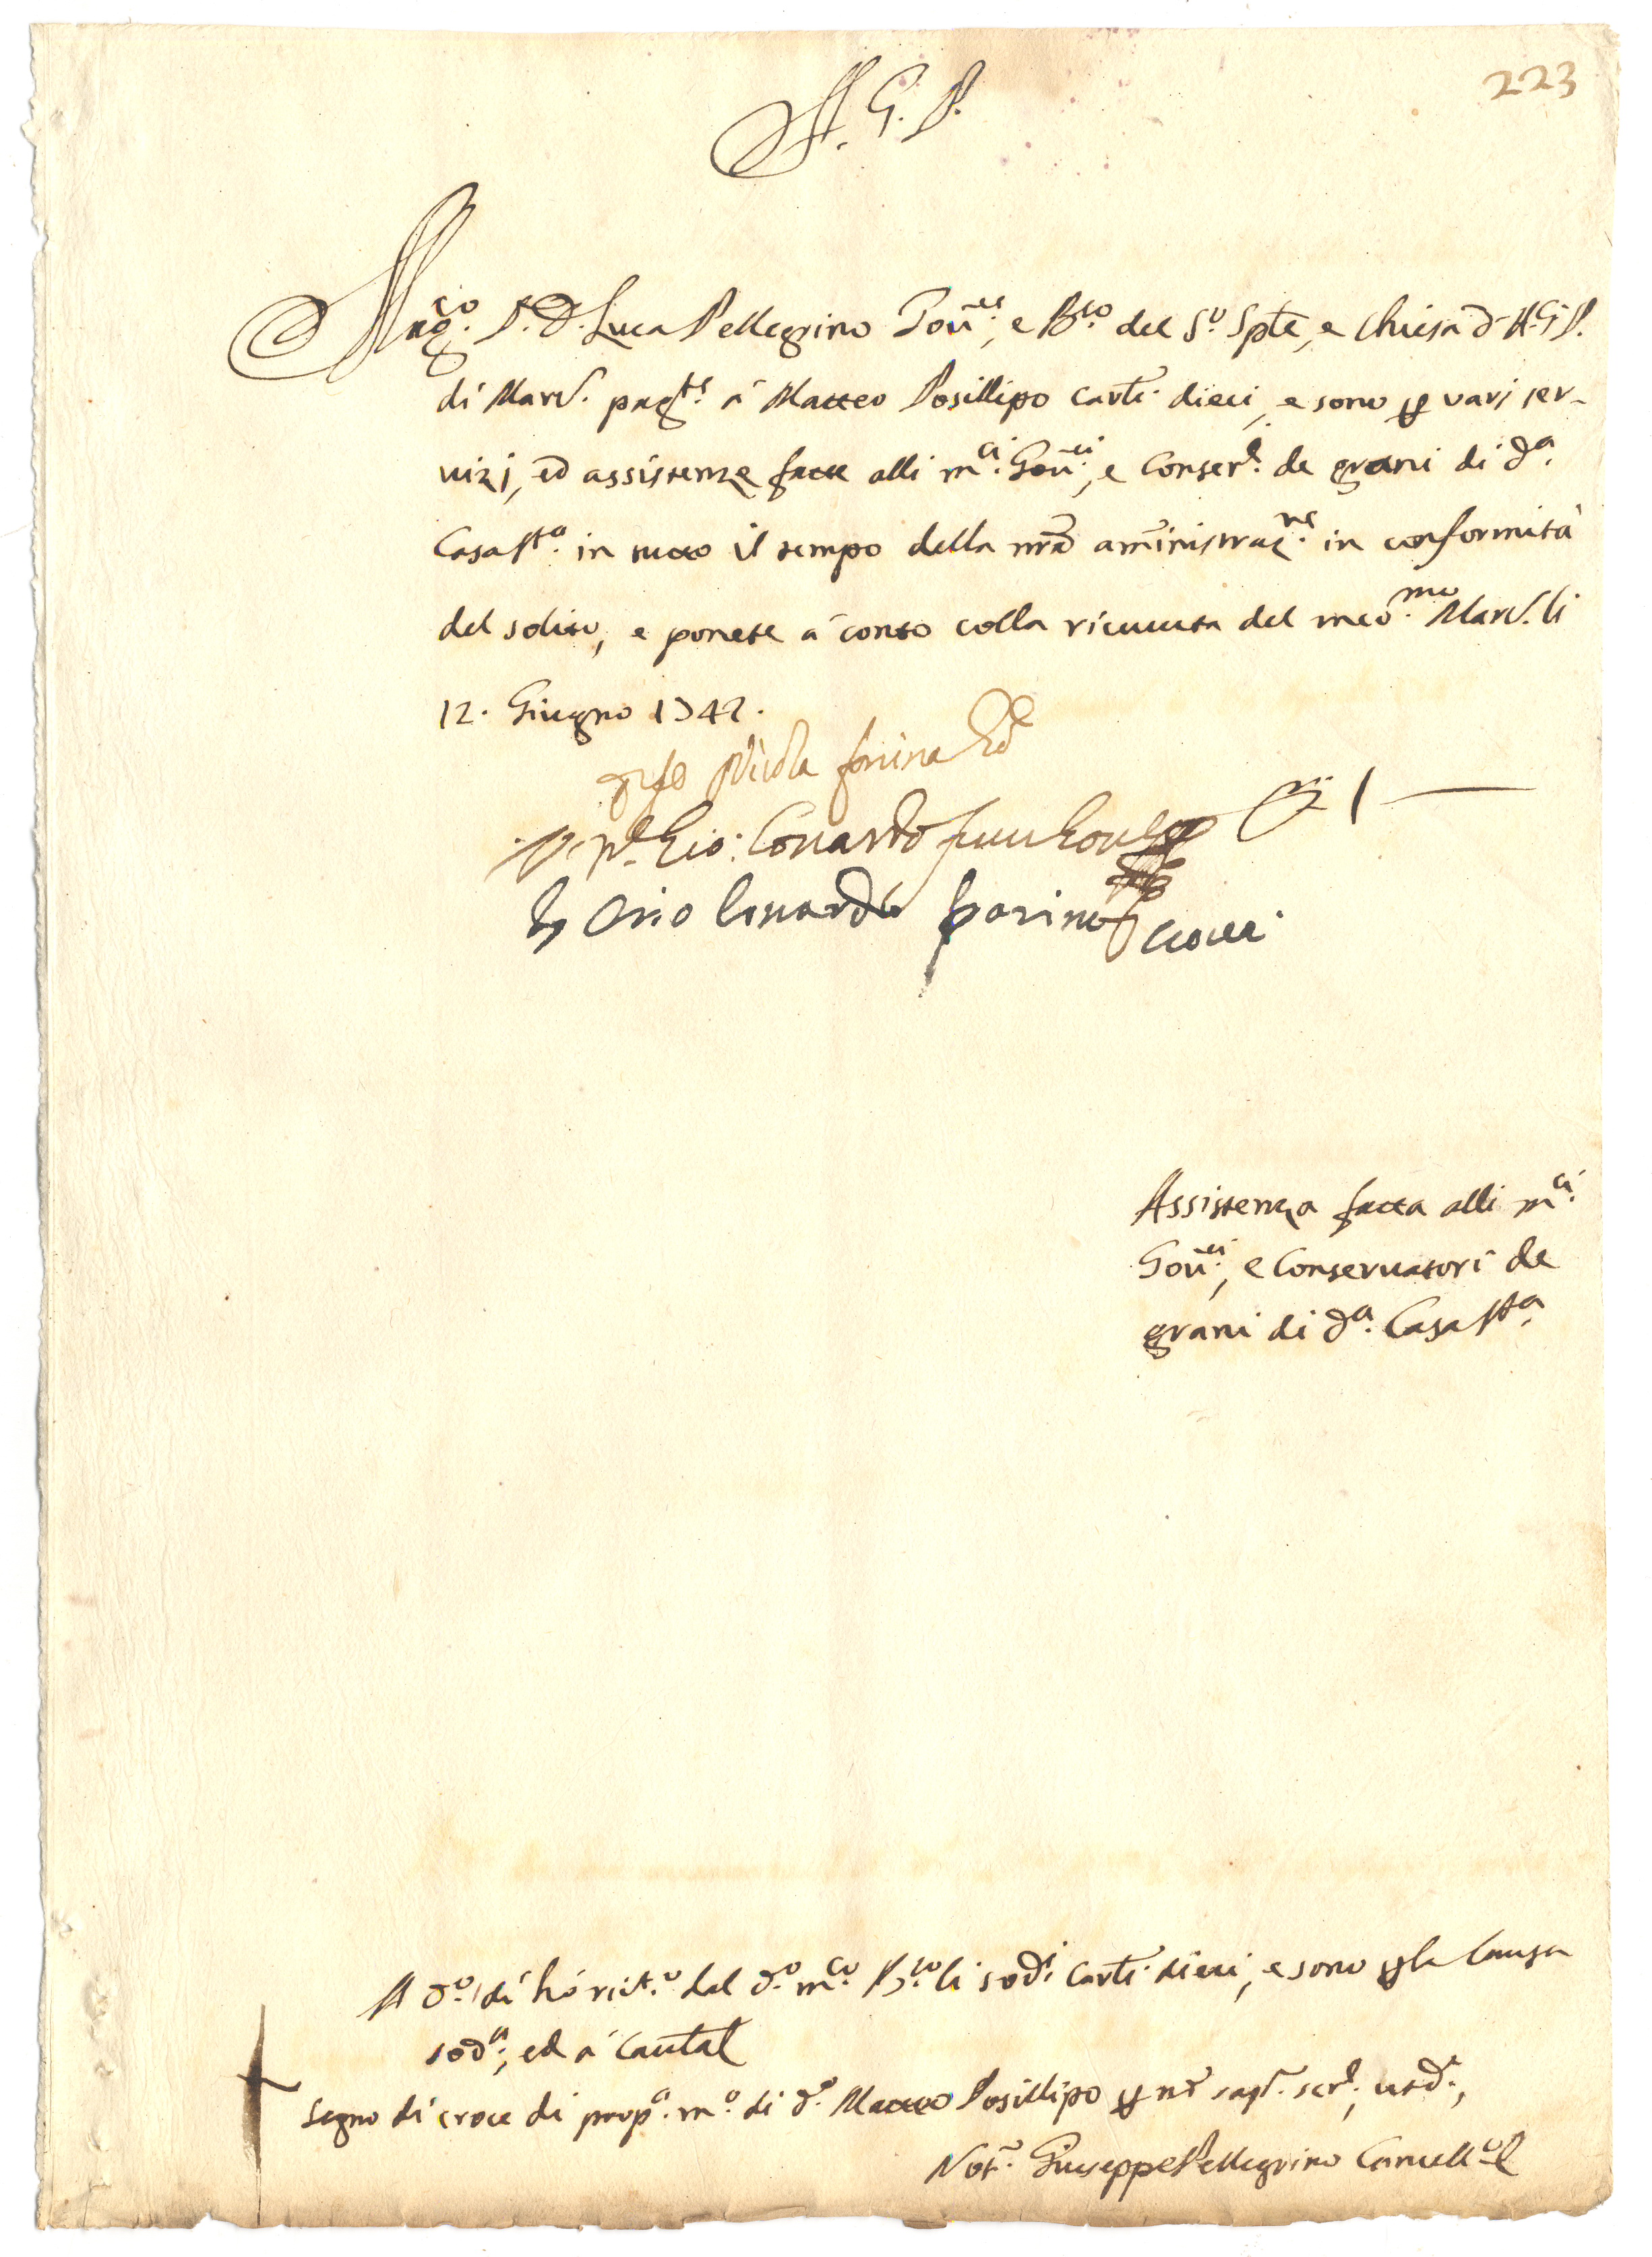 223
A. G. P.
Mag.co P. D. Luca Pellegrino Gov.re, e B.ro del S.o Spte, e Chiesa d' A. G. P.
di Marc. pag.te à Matteo Posillipo Carli. dieci, e sono p vari ser-
vizj, ed assistenze fatte alli m.ci Gov.ri, e Conser.ri de grani di d.a
Casa S.ta in tutto il tempo della nra amministraz.ne in conformità
del solito, e ponete à conto colla ricevuta del med.mo Marc. li
12. Giugno 1742.
Nicola farina
Gio: Lonardo
Lonardo farina
Assistenza fatta alli m.ci
Gov.ri, e Conservatori de
grani di d.a Casa S.ta
A d.o dì hò ricev.o dal d.o m.co B.ro li sod.i Carli. dieci, e sono p la Causa
sod.a, ed à Cautal
Segno di croce di prop.a m.o di d.o Matteo Posillipo p non sap.r scr.e, ut d.r,
Not.r Giuseppe Pellegrino Cancell.e